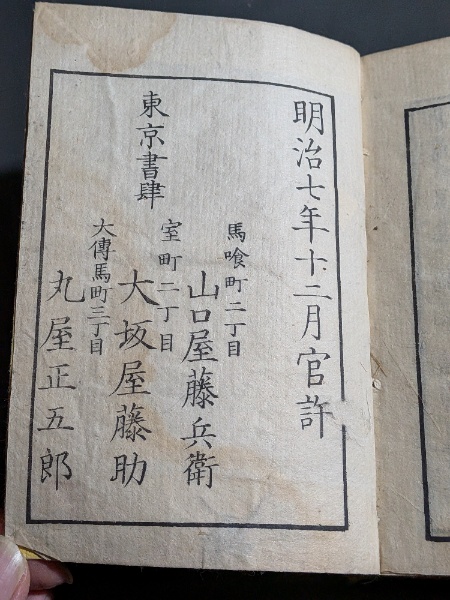 明治七年十二月官許
東京書肆
馬喰町二丁目
山口屋藤兵衛
室町二丁目
大坂屋藤助
大傳馬町三丁目
丸屋正五郎